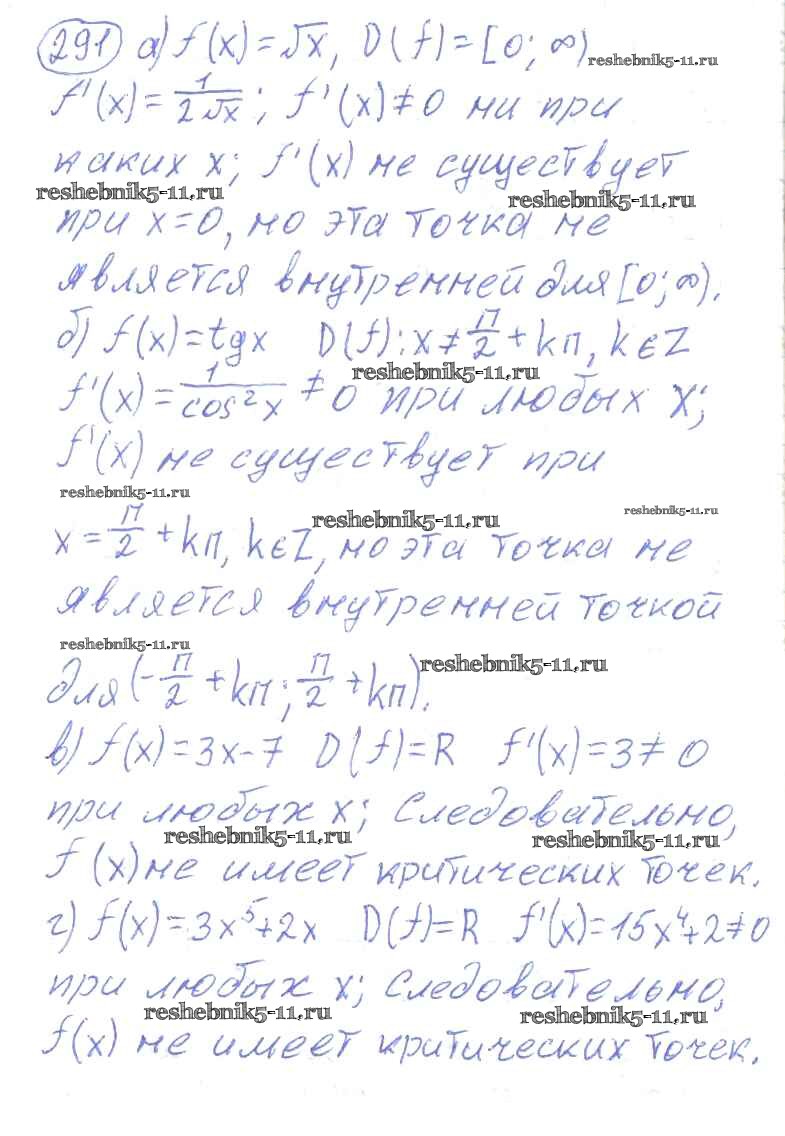 291 а) f(x)=√x, D(f)=[0; ∞)
reshebnik5-11.ru
f'(x)=1/(2√x); f'(x)≠0 ни при
каких x; f'(x) не существует
reshebnik5-11.ru reshebnik5-11.ru
при x=0, но эта точка не
является внутренней для [0; ∞).
б) f(x)=tgx D(f): x≠π/2+kπ, k∈Z
reshebnik5-11.ru
f'(x)=1/cos²x ≠0 при любых x;
f'(x) не существует при
reshebnik5-11.ru
reshebnik5-11.ru reshebnik5-11.ru
x=π/2+kπ, k∈Z, но эта точка не
является внутренней точкой
reshebnik5-11.ru reshebnik5-11.ru
для (-π/2+kπ; π/2+kπ).
в) f(x)=3x-7 D(f)=R f'(x)=3≠0
при любых x; Следовательно,
reshebnik5-11.ru reshebnik5-11.ru
f(x) не имеет критических точек.
г) f(x)=3x⁵+2x D(f)=R f'(x)=15x⁴+2≠0
при любых x; Следовательно,
reshebnik5-11.ru reshebnik5-11.ru
f(x) не имеет критических точек.